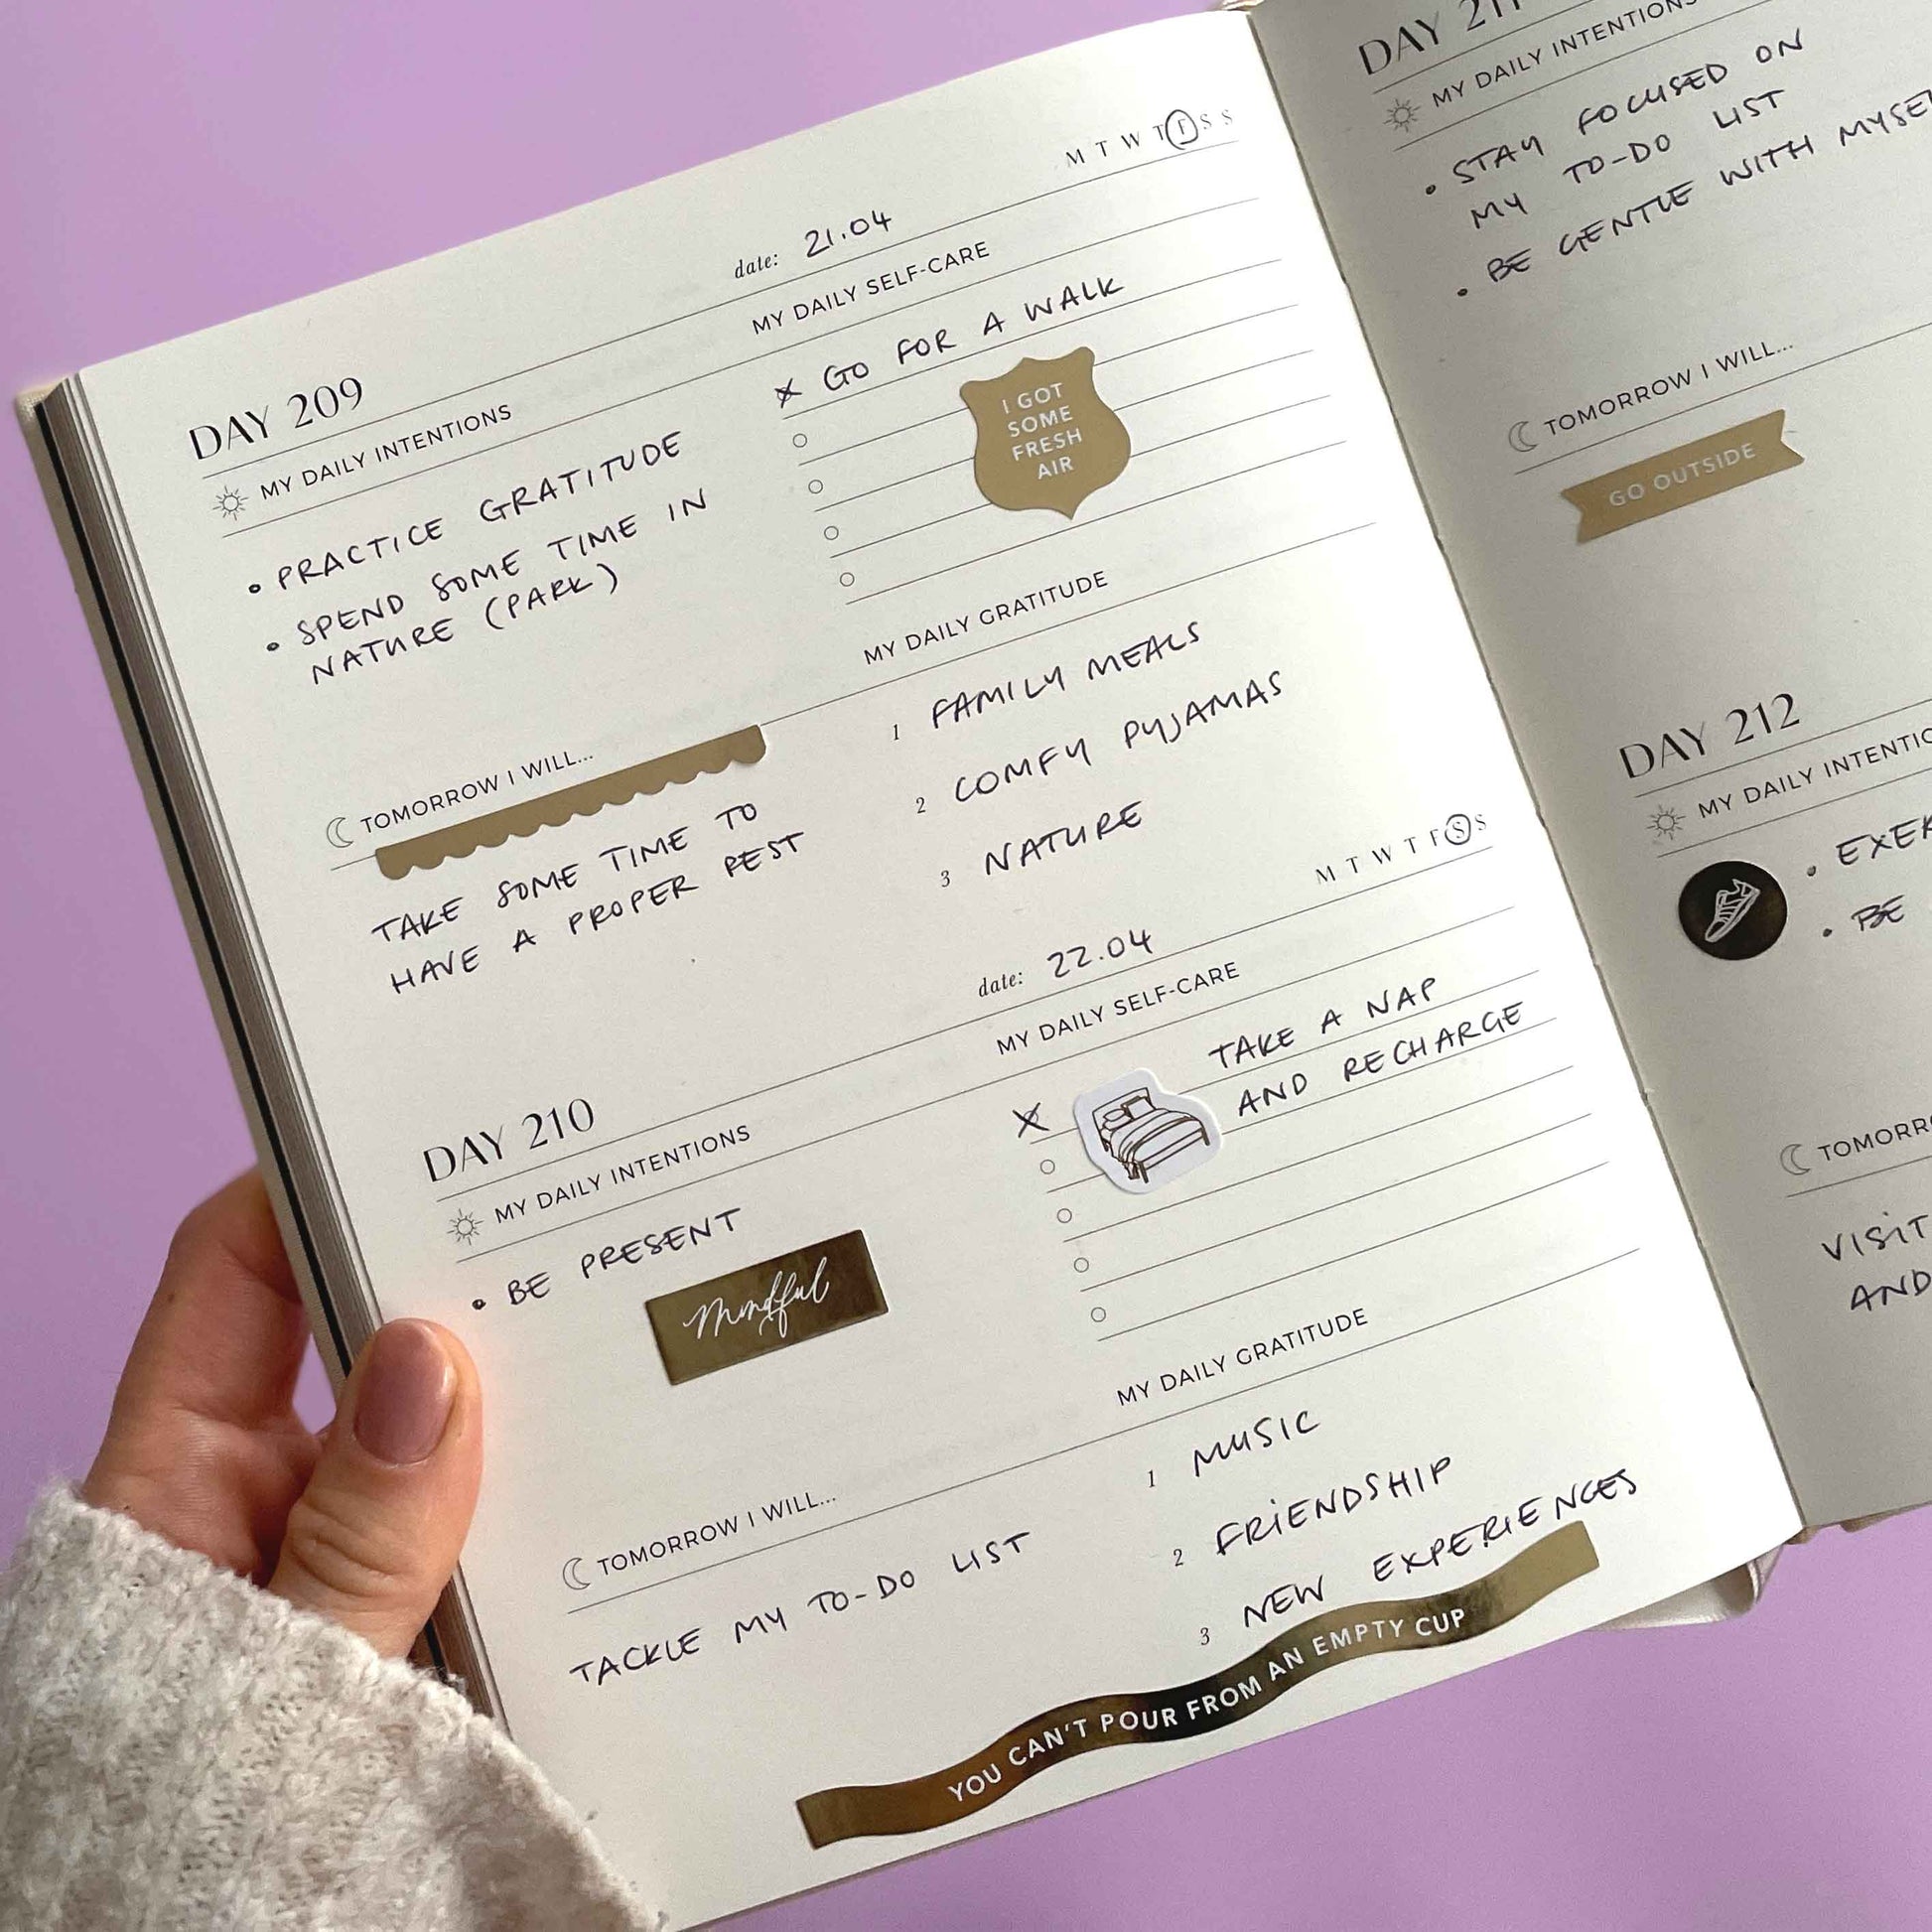 DAY 209
date: 21.04
M T W T F S S
MY DAILY INTENTIONS
• PRACTICE GRATITUDE
• SPEND SOME TIME IN
NATURE (PARK)
MY DAILY SELF-CARE
GO FOR A WALK
I GOT
SOME
FRESH
AIR
TOMORROW I WILL...
TAKE SOME TIME TO
HAVE A PROPER REST
MY DAILY GRATITUDE
1 FAMILY MEALS
2 COMFY PYJAMAS
3 NATURE
DAY 210
date: 22.04
M T W T F S S
MY DAILY INTENTIONS
• BE PRESENT
Mindful
MY DAILY SELF-CARE
TAKE A NAP
AND RECHARGE
TOMORROW I WILL...
TACKLE MY TO-DO LIST
MY DAILY GRATITUDE
1 MUSIC
2 FRIENDSHIP
3 NEW EXPERIENCES
YOU CAN'T POUR FROM AN EMPTY CUP
DAY
MY DAILY INTENTIONS
• STAY FOCUSED ON
MY TO-DO LIST
• BE GENTLE WITH
TOMORROW I WILL...
GO OUTSIDE
DAY 212
MY DAILY
• BE
VISIT
AND